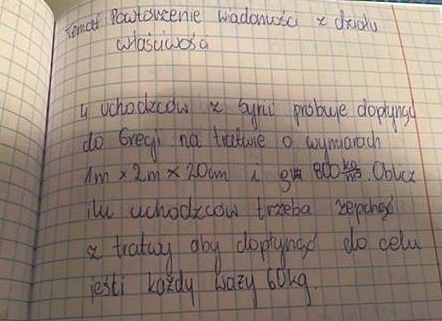 Temat: Powtórzenie wiadomości z działu
właściwości
4 uchodźców z Syrii próbuje dopłynąć
do Grecji na tratwie o wymiarach
1m x 2m x 20cm i g= 800 kg/m³. Oblicz
ilu uchodźców trzeba zepchnąć
z tratwy aby dopłynąć do celu
jeśli każdy waży 60kg.